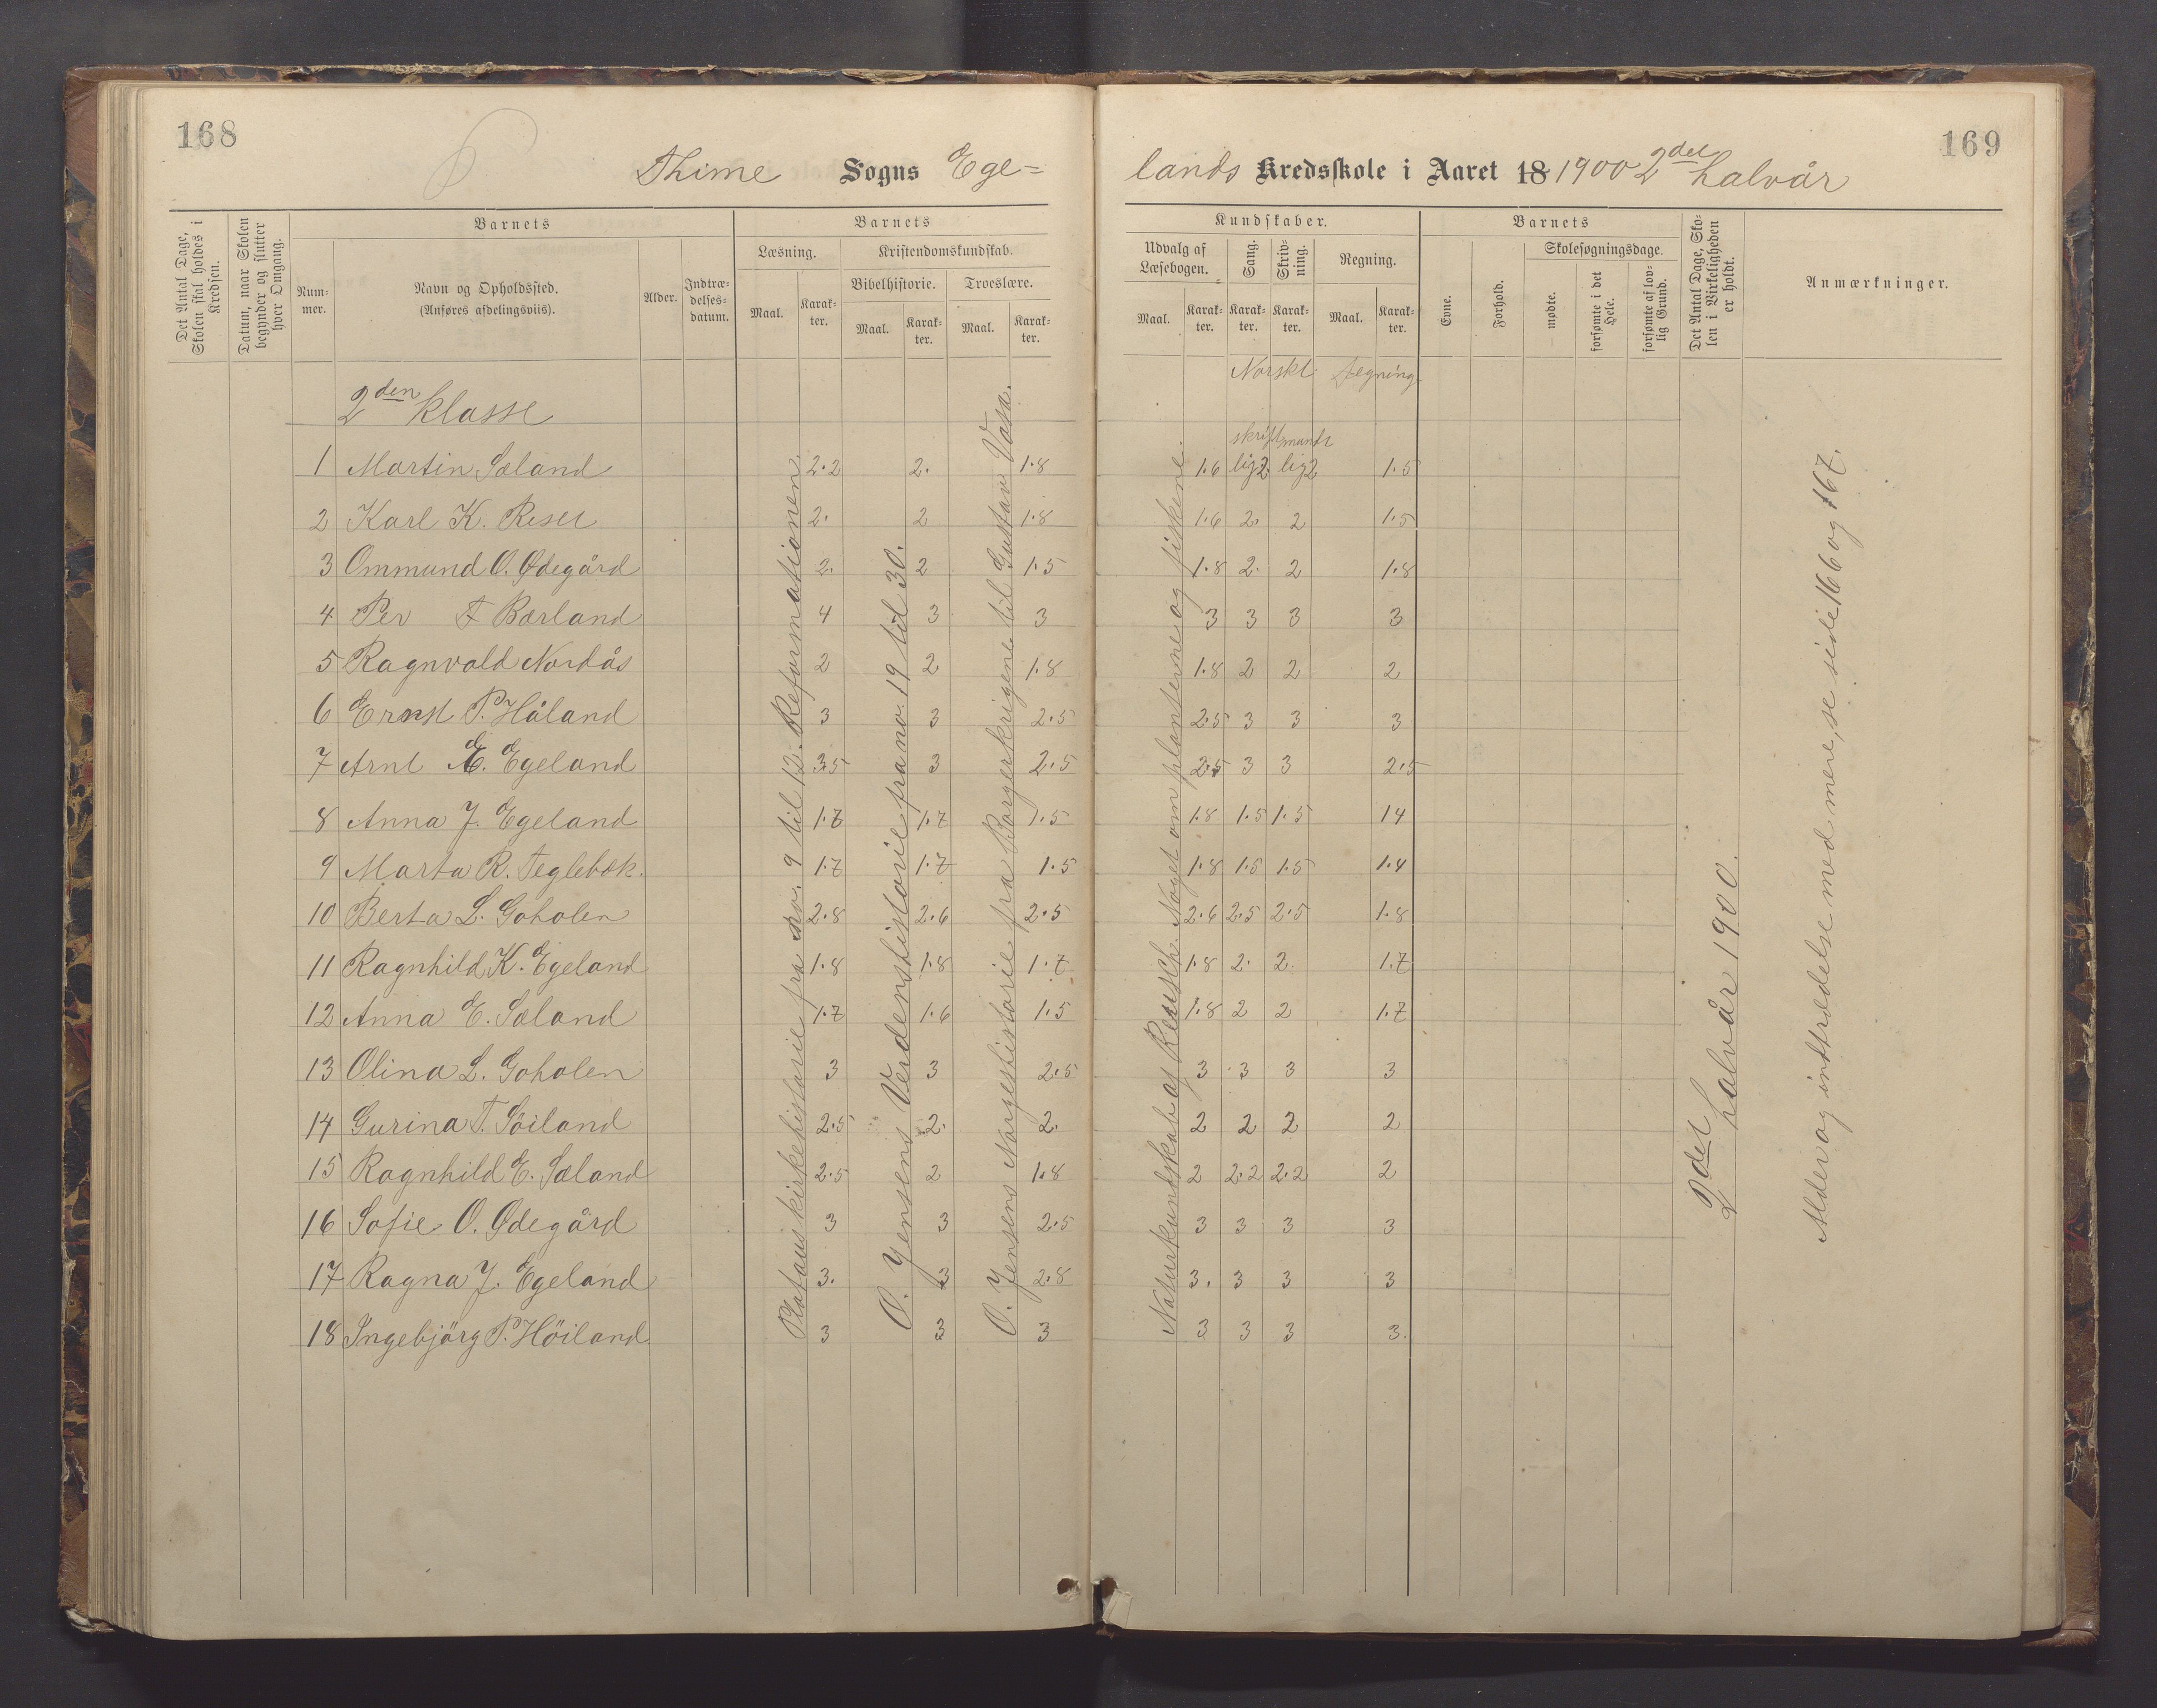 168
Thime Sogns Ege=
Det Antal Dage, Skolen skal holdes i Kredsen.
Datum, naar Skolen begynder og slutter hver Omgang.
Barnets
Num-mer.
Navn og Opholdssted.
(Anføres afdelingsviis).
Alder.
Indtræ-delses-datum.
Barnets
Læsning.
Kristendomskundskab.
Bibelhistorie. Troeslære.
Maal. Karak-ter. Maal. Karak-ter. Maal. Karak-ter.
2den klasse
1 Martin Sæland 2.2 2. 1.8
2 Karl K. Reset 2. 2 1.8
3 Ommund O. Ødegård 2. 2 1.5
4 Per F Bærland 4 3 3
5 Ragnvald Nordås 2 2 1.8
6 Ernst P. Håland 3 3 2.5
7 Arnt E. Egeland 3.5 3 2.5
8 Anna J. Egeland 1.7 1.7 1.5
9 Marta R. Teglebæk. 1.7 1.7 1.5
10 Berta L. Goholen 2.8 2.6 2.5
11 Ragnhild K. Egeland 1.8 1.8 1.7
12 Anna E. Sæland 1.7 1.6 1.5
13 Olina L. Goholen 3 3 2.5
14 Gurina T. Söiland 2.5 2. 2.
15 Ragnhild E. Sæland 2.5 2 1.8
16 Sofie O. Ødegård 3 3 2.5
17 Ragna J. Egeland 3. 3 2.8
18 Ingebjörg P. Höiland 3 3 3
Platous kirkehistorie fra no. 9 til 12. Reformationen.
O. Jensens Verdenshistorie fra no. 19 til 30.
O. Jensens Norgeshistorie fra Borgerkrigene til Gustav Vasa.
169
lands Kredsskole i Aaret 18 1900 2det halvår
Kundskaber.
Udvalg af Læsebogen.
Sang.
Skriv-ning.
Regning.
Maal. Karak-ter. Karak-ter. Karak-ter. Maal. Karak-ter.
Barnets
Evne.
Forhold.
Skolesøgningsdage.
mødte.
forsømte i det Hele.
forsømte af lov-lig Grund.
Det Antal Dage, Sko-len i Virkeligheden er holdt.
Anmærkninger.
Norskt tegning.
skrift mundt
1.6 lig 2. lig 2 1.5
1.6 2. 2 1.5
1.8 2. 2 1.8
3 3 3 3
1.8 2 2 2
2.5 3 3 3
2.5 3 3 2.5
1.8 1.5 1.5 14
1.8 1.5 1.5 1.4
2.6 2.5 2.5 1.8
1.8 2. 2. 1.7
1.8 2 2 1.7
3 3 3 3
2 2 2 2
2 2.2 2.2 2
3 3 3 3
3. 3 3 3
3 3 3 3.
Naturkundskab af Reusch. Noget om planterne og fiskene.
2det halvår 1900.
Alder og indtrædelse med mere, se side 166 og 167.